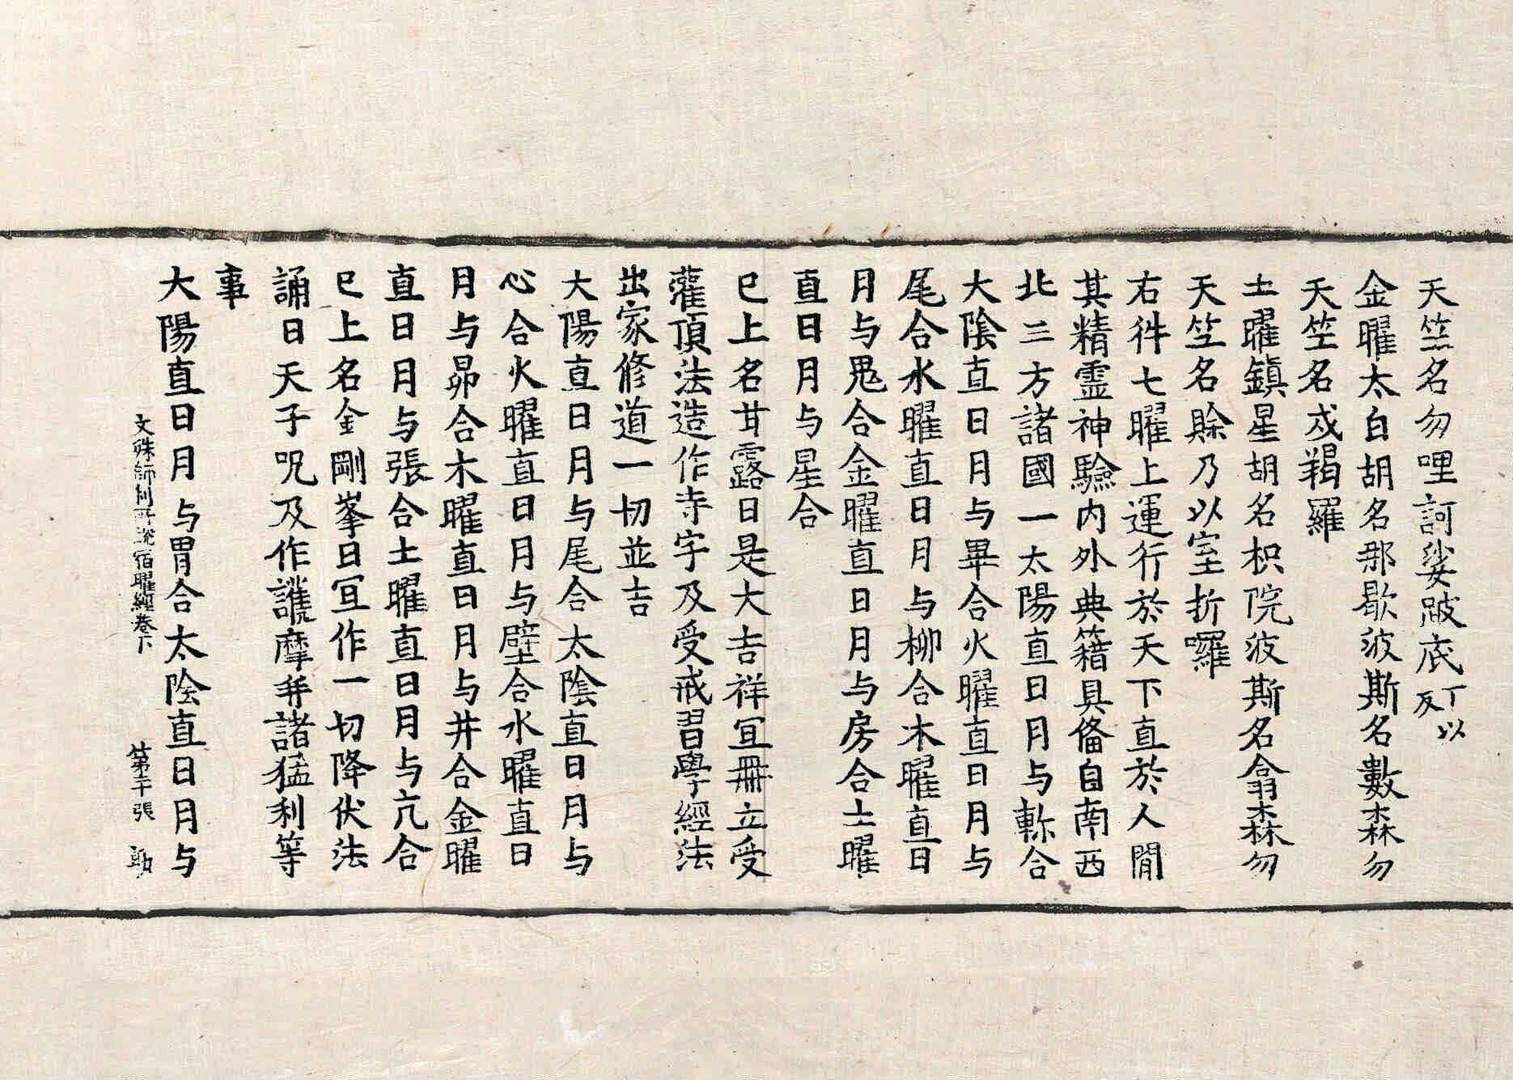 天竺名勿哩訶娑跛底丁以反
金曜太白胡名那歇波斯名數森勿
天竺名戍羯羅
土曜鎮星胡名枳院波斯名翕森勿
天竺名賖乃以室折囉
右件七曜上運行於天下直於人閒
其精靈神驗內外典籍具俻自南西
北三方諸國一太陽直日月与軫合
大陰直日月与畢合火曜直日月与
尾合水曜直日月与柳合木曜直日
月与鬼合金曜直日月与房合土曜
直日月与星合
已上名甘露日是大吉祥冝冊立受
灌頂法造作寺宇及受戒習學經法
出家修道一切並吉
大陽直日月与尾合太陰直日月与
心合火曜直日月与壁合水曜直日
月与昴合木曜直日月与井合金曜
直日月与張合土曜直日月与亢合
已上名金剛峯日冝作一切降伏法
誦日天子呪及作護摩并諸猛利等
事
大陽直日月与胃合太陰直日月与
文殊師利所說宿曜經卷下 第二十張